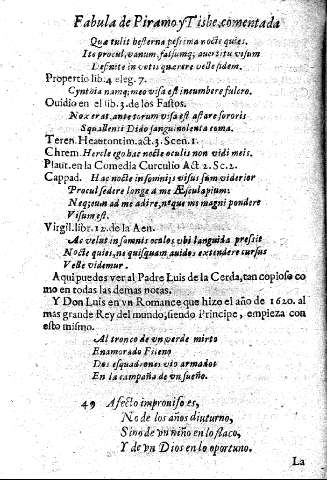 Fabula de Piramo y Tisbe, comentada
Quæ tulit hesterna pessima nocte quies.
Ite procul, vanum, falsumq; avertite visum
Desinite in vetis quærere velle fidem.
Propertio lib. 4 eleg. 7.
Cyntbia namq; meo visa est incumbere fulcro.
Ouidio en el lib. 3. de los Fastos.
Nox erat, ante torum visa est astare sororis
Squallenti Dido sanguinolenta coma.
Teren. Heautontim. act. 3. Scen. 1.
Chrem. Hercle ego hac nocte oculis non vidi meis.
Plaut. en la Comedia Curculio Act 2. Sc. 2.
Cappad. Hac nocte in somnijs visus sum viderier
Procul sedere longe a me Æsculapium:
Neq; eum ad me adire, neque me magni pondere
Visum est.
Virgil. libr. 12. de la Aen.
Ac velut in somnis oculos, vbi languida pressit
Nocte quies, ne quisquam auidos extendere cursus
Velle videmur.
Aqui puedes ver al Padre Luis de la Cerda, tan copioso co
mo en todas las demas notas.
Y Don Luis en vn Romance que hizo el año de 1620. al
mas grande Rey del mundo, siendo Principe, empieza con
esto mismo.
Al tronco de vn verde mirto
Enamorado Fileno
Dos esquadrones vio armados
En la campaña de vn sueño.
49 Afecto improuiso es,
No de los años diuturno,
Sino de vn niño en lo flaco,
Y de vn Dios en lo oportuno.
La